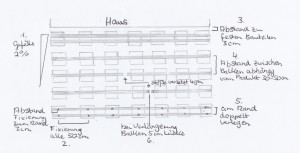 Haus
1.
Gefälle
2%
3.
Abstand zu
festen Bauteilen
2cm
4.
Abstand zwischen
Balken abhängig
vom Produkt 30-50cm
Stöße versetzt legen
5.
am Rand
doppelt
verlegen
Abstand
Fixierung
zum Rand
2cm
Fixierung
alle 50cm
2.
bei Verlängerung
Balken 5cm Lücke
6.